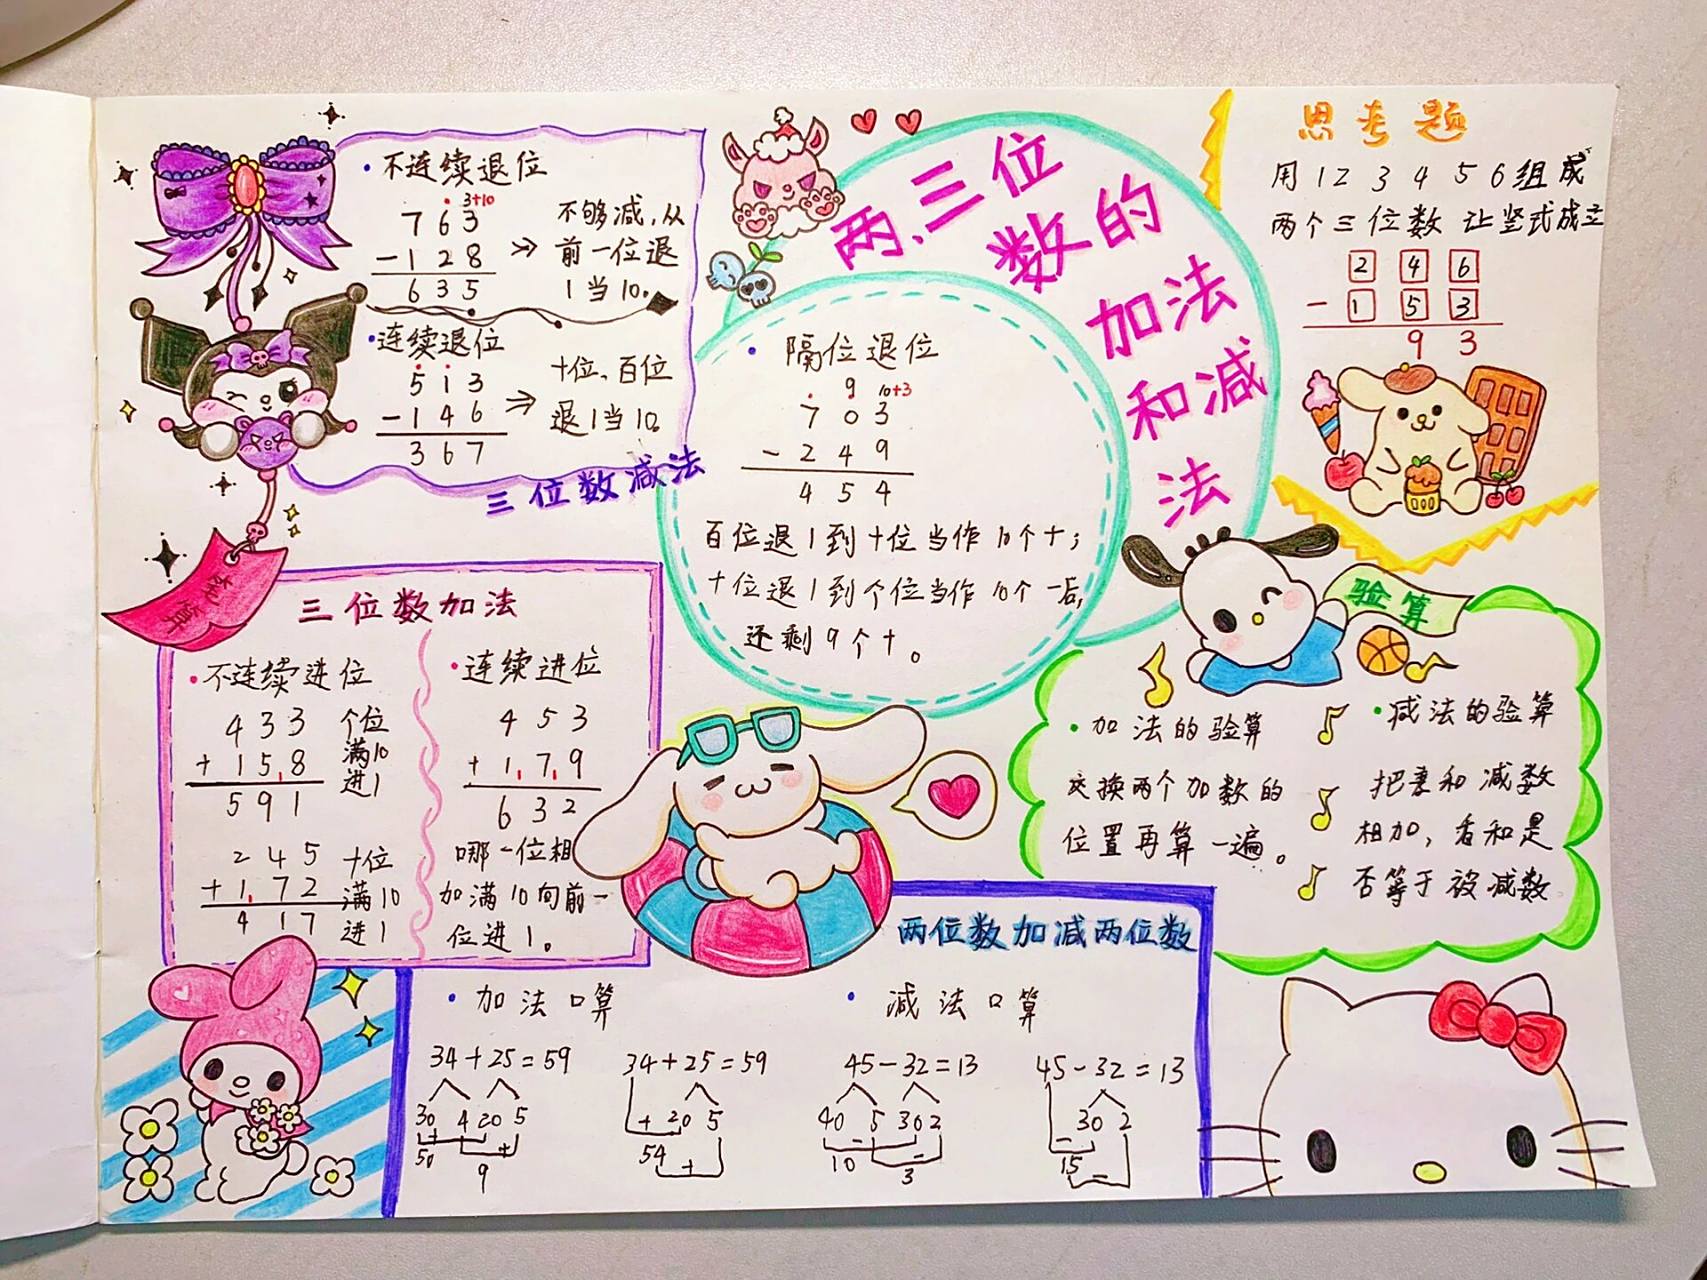 两、三位
数的
加法
和减
法
·不连续退位
3+10
763
-128
635
不够减,从
前一位退
1当10。
·连续退位
513
-146
367
十位、百位
退1当10。
三位数减法
·隔位退位
9 10+3
703
-249
454
百位退1到十位当作10个十;
十位退1到个位当作10个一后,
还剩9个十。
思考题
用1 2 3 4 5 6组成
两个三位数 让竖式成立
2 4 6
- 1 5 3
9 3
三位数加法
·不连续进位
433
+158
591
个位
满10
进1
245
+172
417
十位
满10
进1
·连续进位
453
+179
632
哪一位相
加满10向前一
位进1。
验算
·加法的验算
交换两个加数的
位置再算一遍。
·减法的验算
把差和减数
相加,看和是
否等于被减数
两位数加减两位数
·加法口算
34+25=59
30 4 20 5
+
50
+
9
34+25=59
+ 20 5
54 +
·减法口算
45-32=13
40 5 30 2
-
10
-
3
45-32=13
30 2
-
15 -